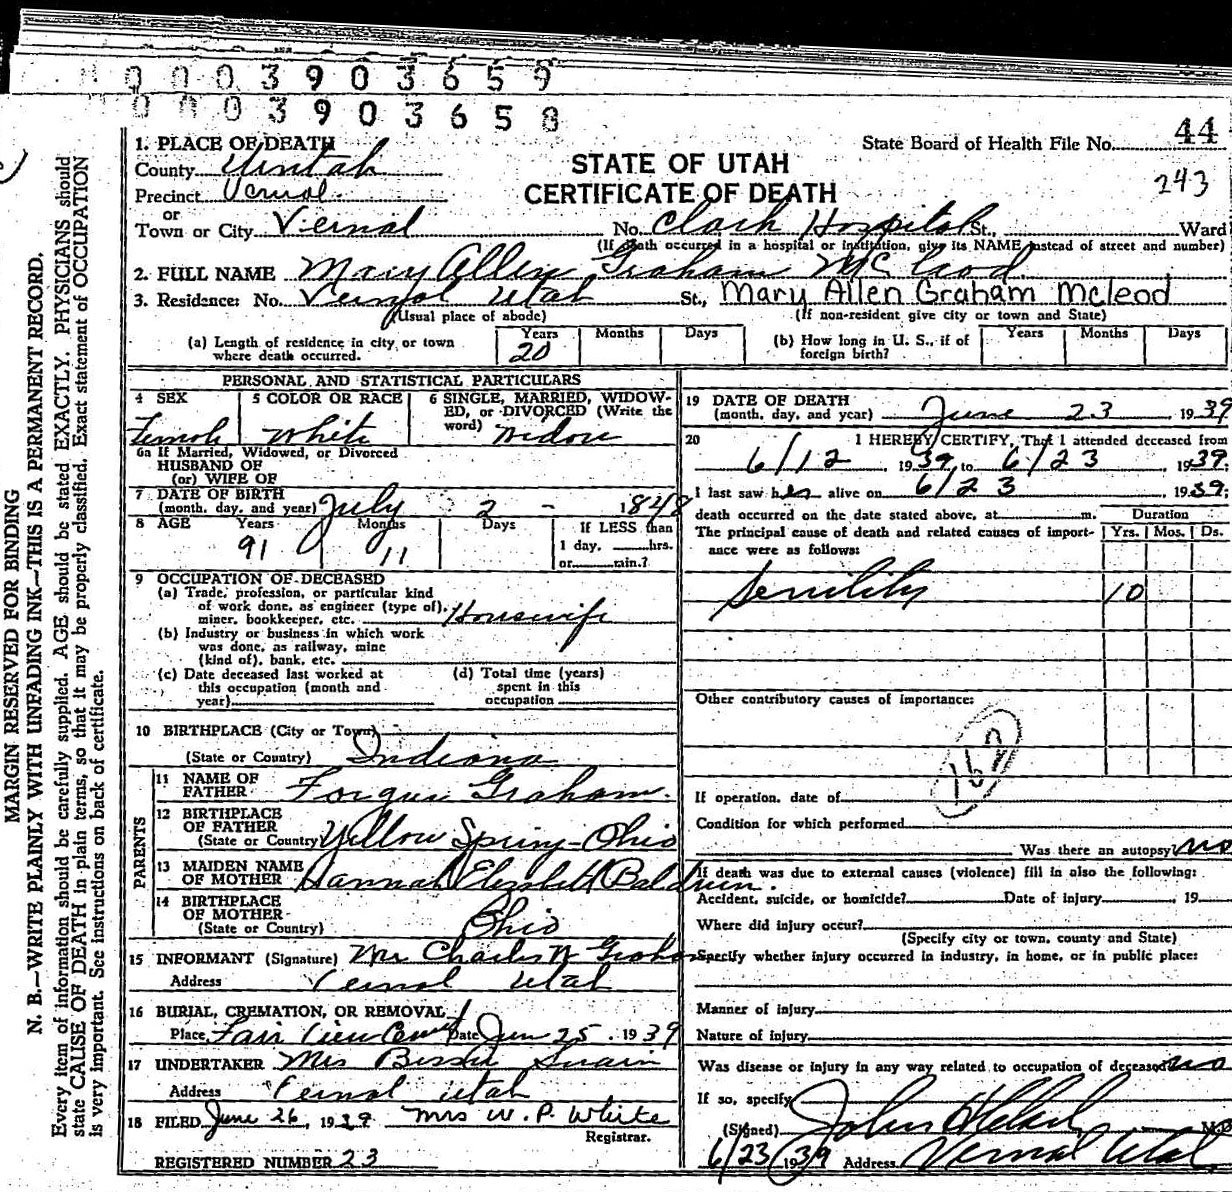 0003903659
0003903658
1. PLACE OF DEATH
County Uintah
Precinct Vernal
or
Town or City Vernal
State Board of Health File No. 44
243
STATE OF UTAH
CERTIFICATE OF DEATH
No. Clark Hospital St., Ward
(If death occurred in a hospital or institution, give its NAME instead of street and number)
2. FULL NAME Mary Allen Graham McLeod
3. Residence: No. Vernal Utah St., Mary Allen Graham Mcleod
(Usual place of abode) (If non-resident give city or town and State)
(a) Length of residence in city or town where death occurred. Years 20 Months Days
(b) How long in U. S., if of foreign birth? Years Months Days
PERSONAL AND STATISTICAL PARTICULARS
4 SEX Female
5 COLOR OR RACE White
6 SINGLE, MARRIED, WIDOWED, or DIVORCED (Write the word) Widow
6a If Married, Widowed, or Divorced
HUSBAND OF
(or) WIFE OF
7 DATE OF BIRTH
(month, day, and year) July 2 - 1848
8 AGE Years 91 Months 11 Days If LESS than
1 day, hrs.
or min.?
9 OCCUPATION OF DECEASED
(a) Trade, profession, or particular kind
of work done, as engineer (type of),
miner, bookkeeper, etc. Housewife
(b) Industry or business in which work
was done, as railway, mine
(kind of), bank, etc.
(c) Date deceased last worked at
this occupation (month and
year)
(d) Total time (years)
spent in this
occupation
10 BIRTHPLACE (City or Town)
(State or Country) Indiana
PARENTS
11 NAME OF
FATHER Forgus Graham.
12 BIRTHPLACE
OF FATHER
(State or Country) Yellow Spring - Ohio
13 MAIDEN NAME
OF MOTHER Hannah Elizabeth Baldwin.
14 BIRTHPLACE
OF MOTHER
(State or Country) Ohio
15 INFORMANT (Signature) Mr Charles N Graham
Address Vernal Utah
16 BURIAL, CREMATION, OR REMOVAL
Place Fair View Cem Date Jun 25, 1939
17 UNDERTAKER Mrs Swain
Address Vernal Utah
18 FILED June 26, 1939 Mrs W. P. White
Registrar.
REGISTERED NUMBER 23
19 DATE OF DEATH
(month, day, and year) June 23 1939
20 I HEREBY CERTIFY, That I attended deceased from
6/12, 1939, to 6/23, 1939
I last saw her alive on 6/23, 1939.
death occurred on the date stated above, at m.
The principal cause of death and related causes of importance were as follows:
Duration
Yrs. Mos. Ds.
Senility 10
Other contributory causes of importance:
162
If operation, date of
Condition for which performed
Was there an autopsy? no
If death was due to external causes (violence) fill in also the following:
Accident, suicide, or homicide? Date of injury , 19
Where did injury occur?
(Specify city or town, county and State)
Specify whether injury occurred in industry, in home, or in public place:
Manner of injury
Nature of injury
Was disease or injury in any way related to occupation of deceased no
If so, specify
(Signed) John M.D.
6/23 1939 Address Vernal Utah
MARGIN RESERVED FOR BINDING
N. B.—WRITE PLAINLY WITH UNFADING INK—THIS IS A PERMANENT RECORD.
Every item of information should be carefully supplied. AGE should be stated EXACTLY. PHYSICIANS should
state CAUSE OF DEATH in plain terms, so that it may be properly classified. Exact statement of OCCUPATION
is very important. See instructions on back of certificate.